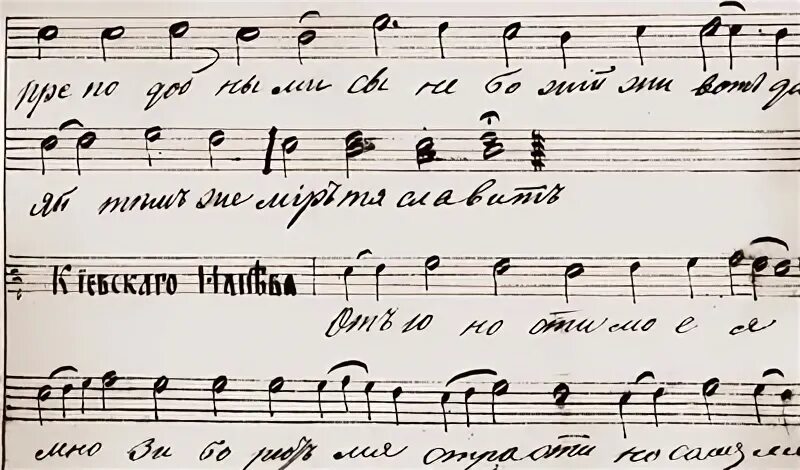 пре по доб ны ми сы не бо жій жи вотъ да
яй тѣмъ же міръ тя сла витъ
Кіевскаго Напѣва
Отъ ю но сти мо е я
мно зи бо рютъ мя стра сти но самъ мя